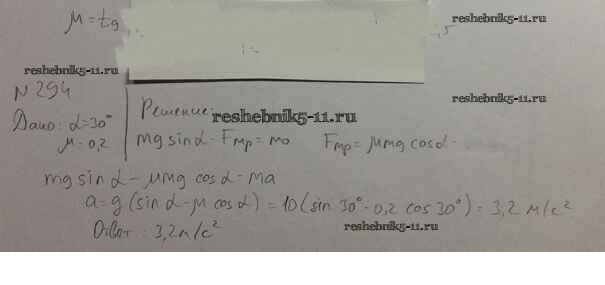 μ = tg
reshebnik5-11.ru
reshebnik5-11.ru
N 294
reshebnik5-11.ru
Дано: α=30°
μ=0,2
Решение:
reshebnik5-11.ru
mg sinα - Fтр = ma Fтр = μmg cosα
mg sinα - μmg cosα = ma
a = g (sinα - μ cosα) = 10 (sin 30° - 0,2 cos 30°) = 3,2 м/с²
Ответ: 3,2 м/с²
reshebnik5-11.ru